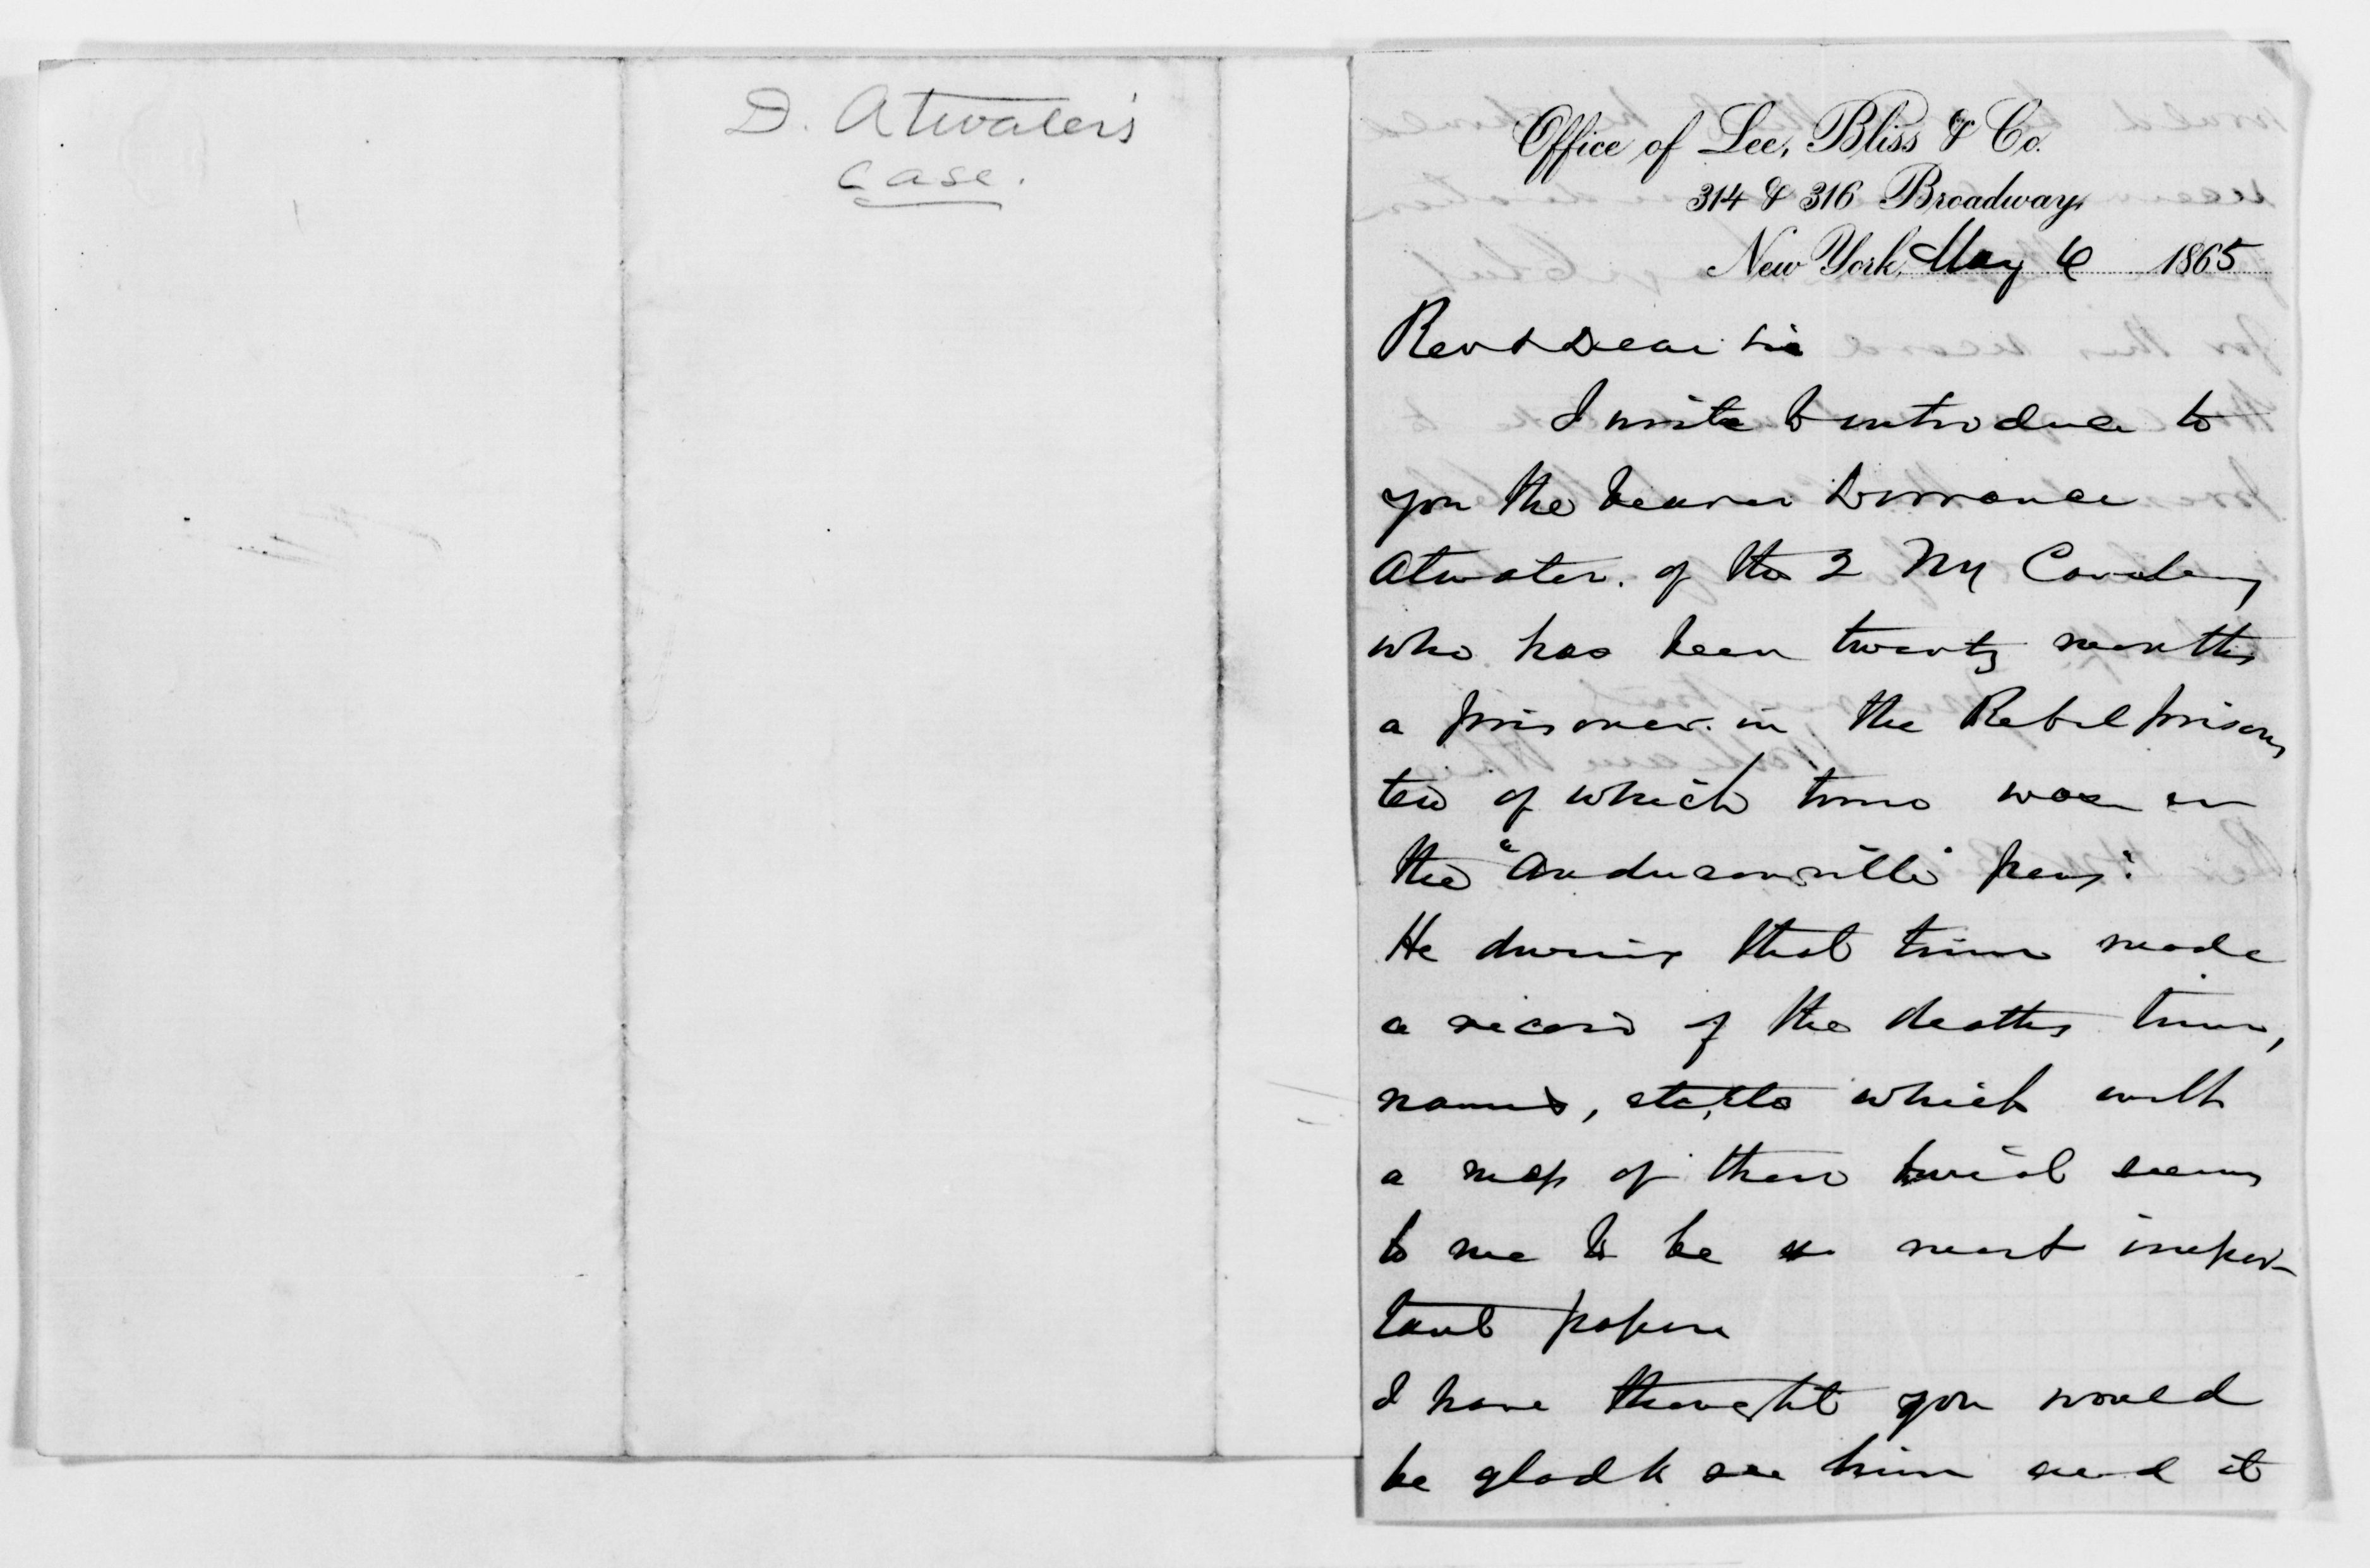 D. Atwater's
Case.
Office of Lee, Bliss & Co.
314 & 316 Broadway,
New York, May 6 1865
Rev & Dear Sir
I write to introduce to
you the bearer Dorrance
Atwater. of the 2 NY Cavalry
who has been twenty months
a prisoner. in the Rebel prisons
ten of which time was in
the "Andersonville" pens.
He during that time made
a record of the deaths time,
names, etc, etc which with
a map of their burial seems
to me to be a most impor-
tant paper
I have thought you would
be glad to see him and it